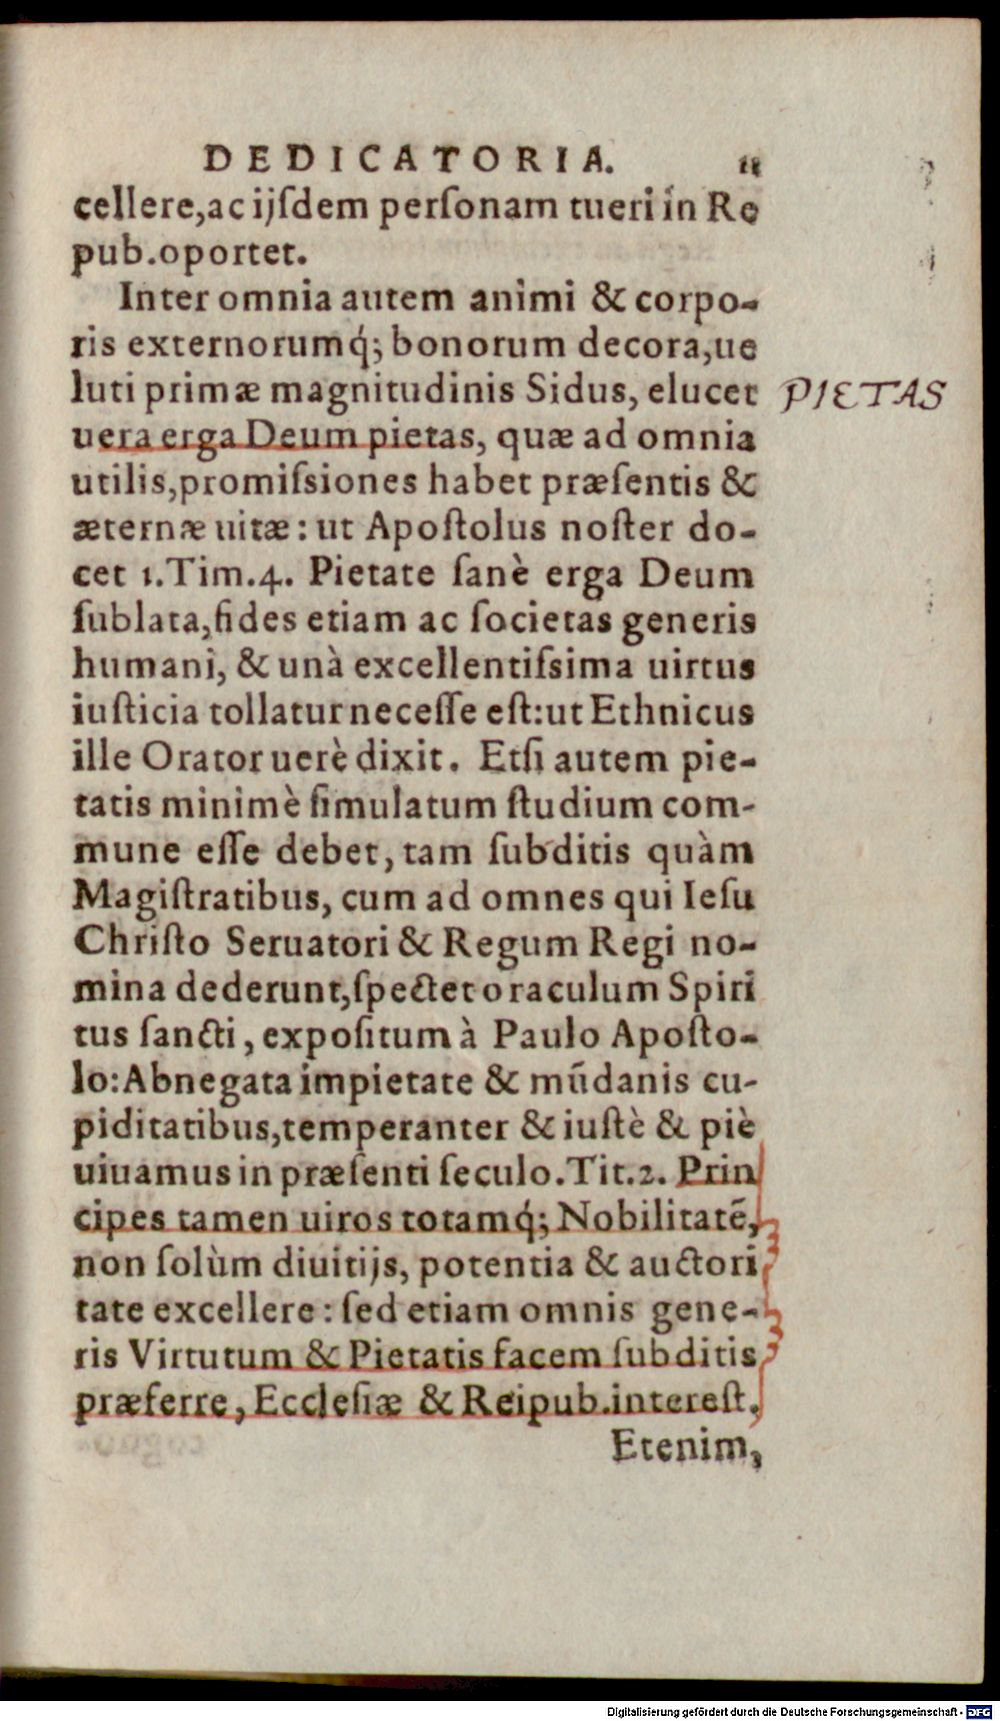 DEDICATORIA. 11
cellere, ac ijſdem perſonam tueri in Re
pub. oportet.
Inter omnia autem animi & corpo-
ris externorumq́; bonorum decora, ue
luti primæ magnitudinis Sidus, elucet PIETAS
uera erga Deum pietas, quæ ad omnia
utilis, promiſsiones habet præſentis &
æternæ uitæ: ut Apoſtolus noſter do-
cet 1. Tim. 4. Pietate ſanè erga Deum
ſublata, fides etiam ac ſocietas generis
humani, & unà excellentiſsima uirtus
iuſticia tollatur neceſſe eſt: ut Ethnicus
ille Orator uerè dixit. Etſi autem pie-
tatis minimè ſimulatum ſtudium com-
mune eſſe debet, tam ſubditis quàm
Magiſtratibus, cum ad omnes qui Ieſu
Chriſto Seruatori & Regum Regi no-
mina dederunt, ſpectet oraculum Spiri
tus ſancti, expoſitum à Paulo Apoſto-
lo: Abnegata impietate & mūdanis cu-
piditatibus, temperanter & iuſtè & piè
uiuamus in præſenti ſeculo. Tit. 2. Prin
cipes tamen uiros totamq́; Nobilitatē,
non ſolùm diuitijs, potentia & auctori
tate excellere: ſed etiam omnis gene-
ris Virtutum & Pietatis facem ſubditis
præferre, Eccleſiæ & Reipub. intereſt.
Etenim,
Digitalisierung gefördert durch die Deutsche Forschungsgemeinschaft - DFG